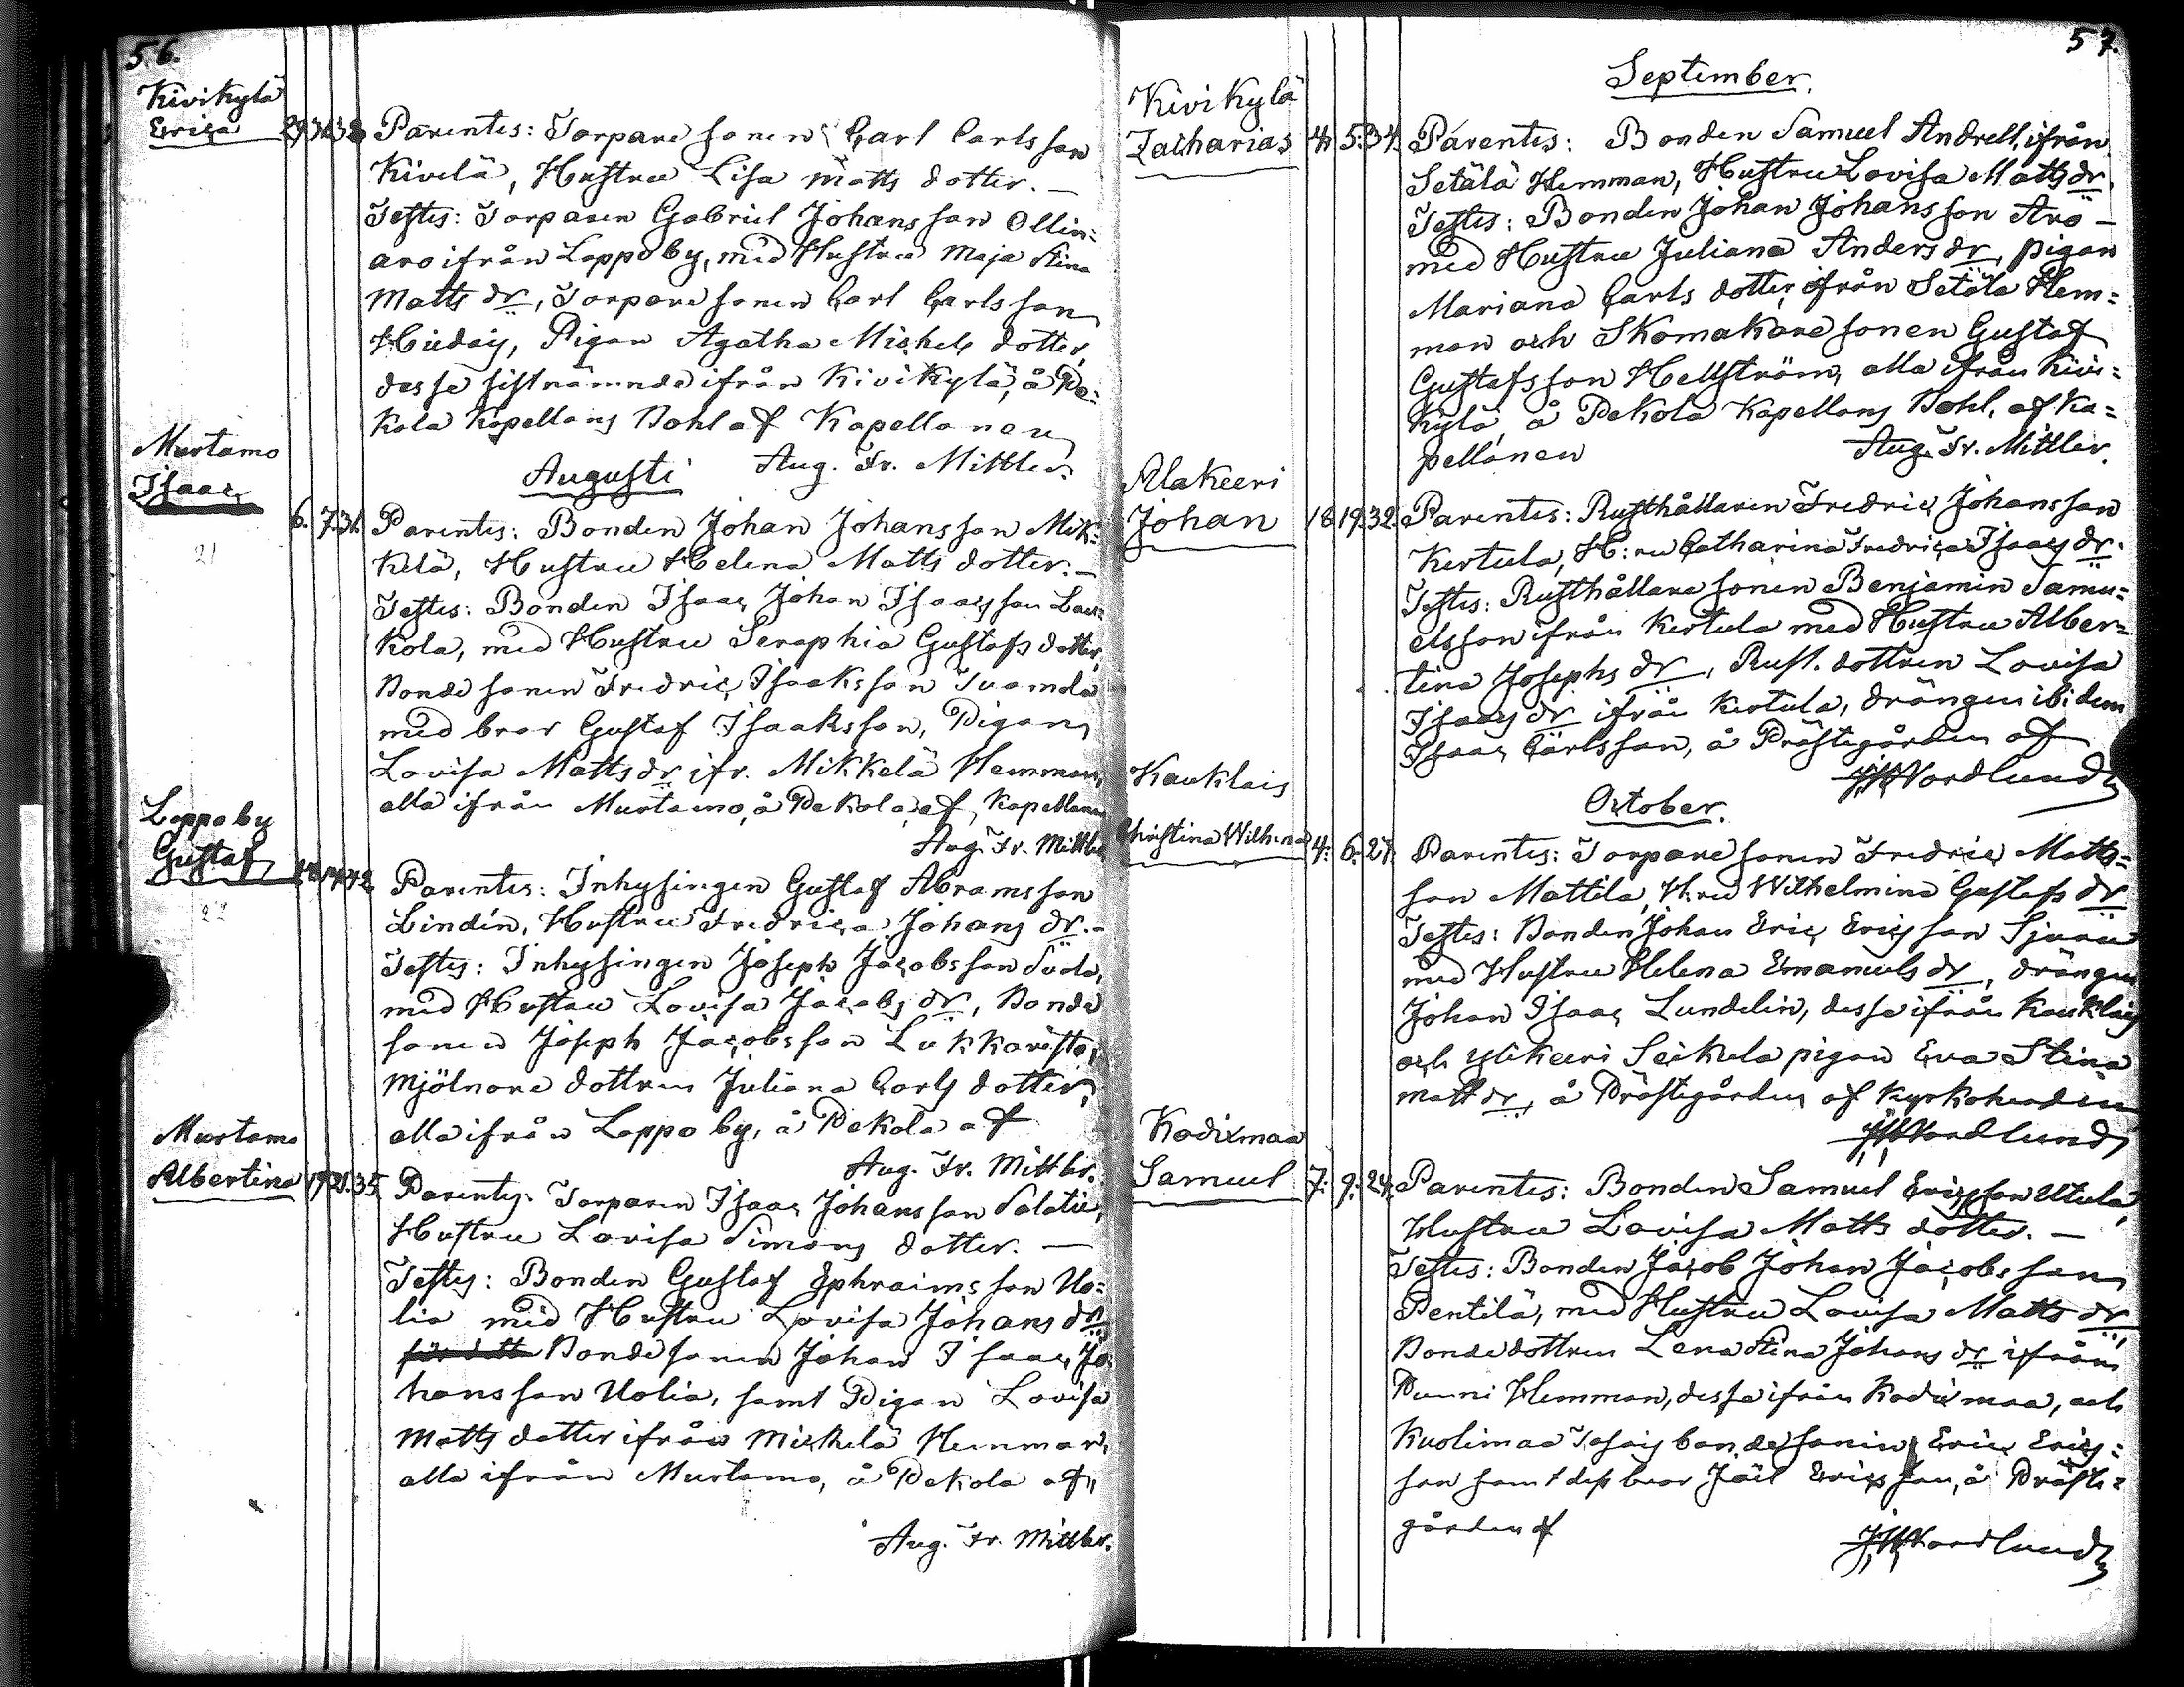 56.
Kivikylä
Erica 29. 31. 38. Parentes: Torparesonen Carl Carlsson
Kivelä, Hustru Lisa Matts dotter. —
Testes: Torparen Gabriel Johansson Ollin:
aro ifrån Loppoby, med Hustru Maja Stina
Matts dr, Torparesonen Carl Carlsson
Pigan Agatha Michels dotter,
desse sistnämnde ifrån Kivikylä, å Pe:
kola Kapellans Bohl af Kapellanen
Aug. Fr. Mittler.
Augusti
Murtamo
Isaac 6. 7. 31. Parentes: Bonden Johan Johansson Mik:
kelä, Hustru Helena Matts dotter. —
21
Testes: Bonden Isaac Johan Isaacsson Lau:
kola, med Hustru Seraphia Gustafs dotter,
Bondesonen Fredric Isaaksson Tuomola
med bror Gustaf Isaaksson, Pigan
Lovisa Matts dr ifr. Mikkelä Hemman,
alla ifrån Murtamo, å Pekola af Kapellanen
Aug. Fr. Mittler
Loppoby
Gustaf Parentes: Inhysingen Gustaf Abramsson
22
Lindén, Hustru Fredrica Johans dr. -
Testes: Inhysingen Joseph Jacobsson
med Hustru Lovisa Jacobs dr, Bonde
sonen Joseph Jacobsson Lukkaroisto,
Mjölnare dottren Juliana Carls dotter,
alla ifrån Loppoby, å Pekola af
Aug. Fr. Mittler.
Murtamo
Albertina 19. 21. 35. Parentes: Torparen Isaac Johansson
Hustru Lovisa Simons dotter. —
Testes: Bonden Gustaf Ephraimsson Uo:
lia med Hustru Lovisa Johans dr
Bondesonen Johan Isaac Jo:
hansson Uolia, samt Pigan Lovisa
Matts dotter ifrån Michelä Hemman,
alla ifrån Murtamo, å Pekola af
Aug. Fr. Mittler.
57.
September.
Kivikylä
Zacharias 4. 5. 34. Parentes: Bonden Samuel Andrell, ifrån
Setälä Hemman, Hustru Lovisa Matts dr.
Testes: Bonden Johan Johansson Aro —
med Hustru Juliana Anders dr, pigan
Mariana Carls dotter ifrån Setälä Hem:
man och Skomakaresonen Gustaf
Gustafsson Hellström, alla ifrån Kivi:
kylä å Pekola Kapellans Bohl, af Ka:
pellanen Aug. Fr. Mittler.
Alakeeri
Johan 18. 19. 32. Parentes: Rusthållaren Fredric Johansson
Kertula, H:ru Catharina Fredrica Isaacs dr.
Testes: Rusthållaresonen Benjamin Samu:
elsson ifrån Kertula med Hustru Alber:
tina Josephs dr, Rust. dottren Lovisa
Isaacs dr ifrån Kertula, drängen ibidem
Isaac Carlsson, å Prästegården af
Nordlund
October.
Kauklais
Christina Wilh:na 4. 6. 27. Parentes: Torparesonen Fredric Matts:
son Mattila, H:ru Wilhelmina Gustafs dr
Testes: Bonden Johan Eric Ericsson Sjuru
med Hustru Helena Emanuels dr, drängen
Johan Isaac Lundelin, desse ifrån Kauklais
och Ylikeeri Seikula pigan Eva Stina
Matts dr, å Prästegården af Kyrkoherden
Nordlund
Kodixmaa
Samuel 7. 9. 24. Parentes: Bonden Samuel Ericsson Utula,
Hustru Lovisa Matts dotter. —
Testes: Bonden Jacob Johan Jacobsson
Pentilä, med Hustru Lovisa Matts dr
Bondedottren Lena Stina Johans dr ifrån
Punni Hemman, desse ifrån Kodixmaa, och
Kuolimaa bondesonen Eric Erics:
son samt dess bror Ericsson, å Präste:
gården af
Nordlund